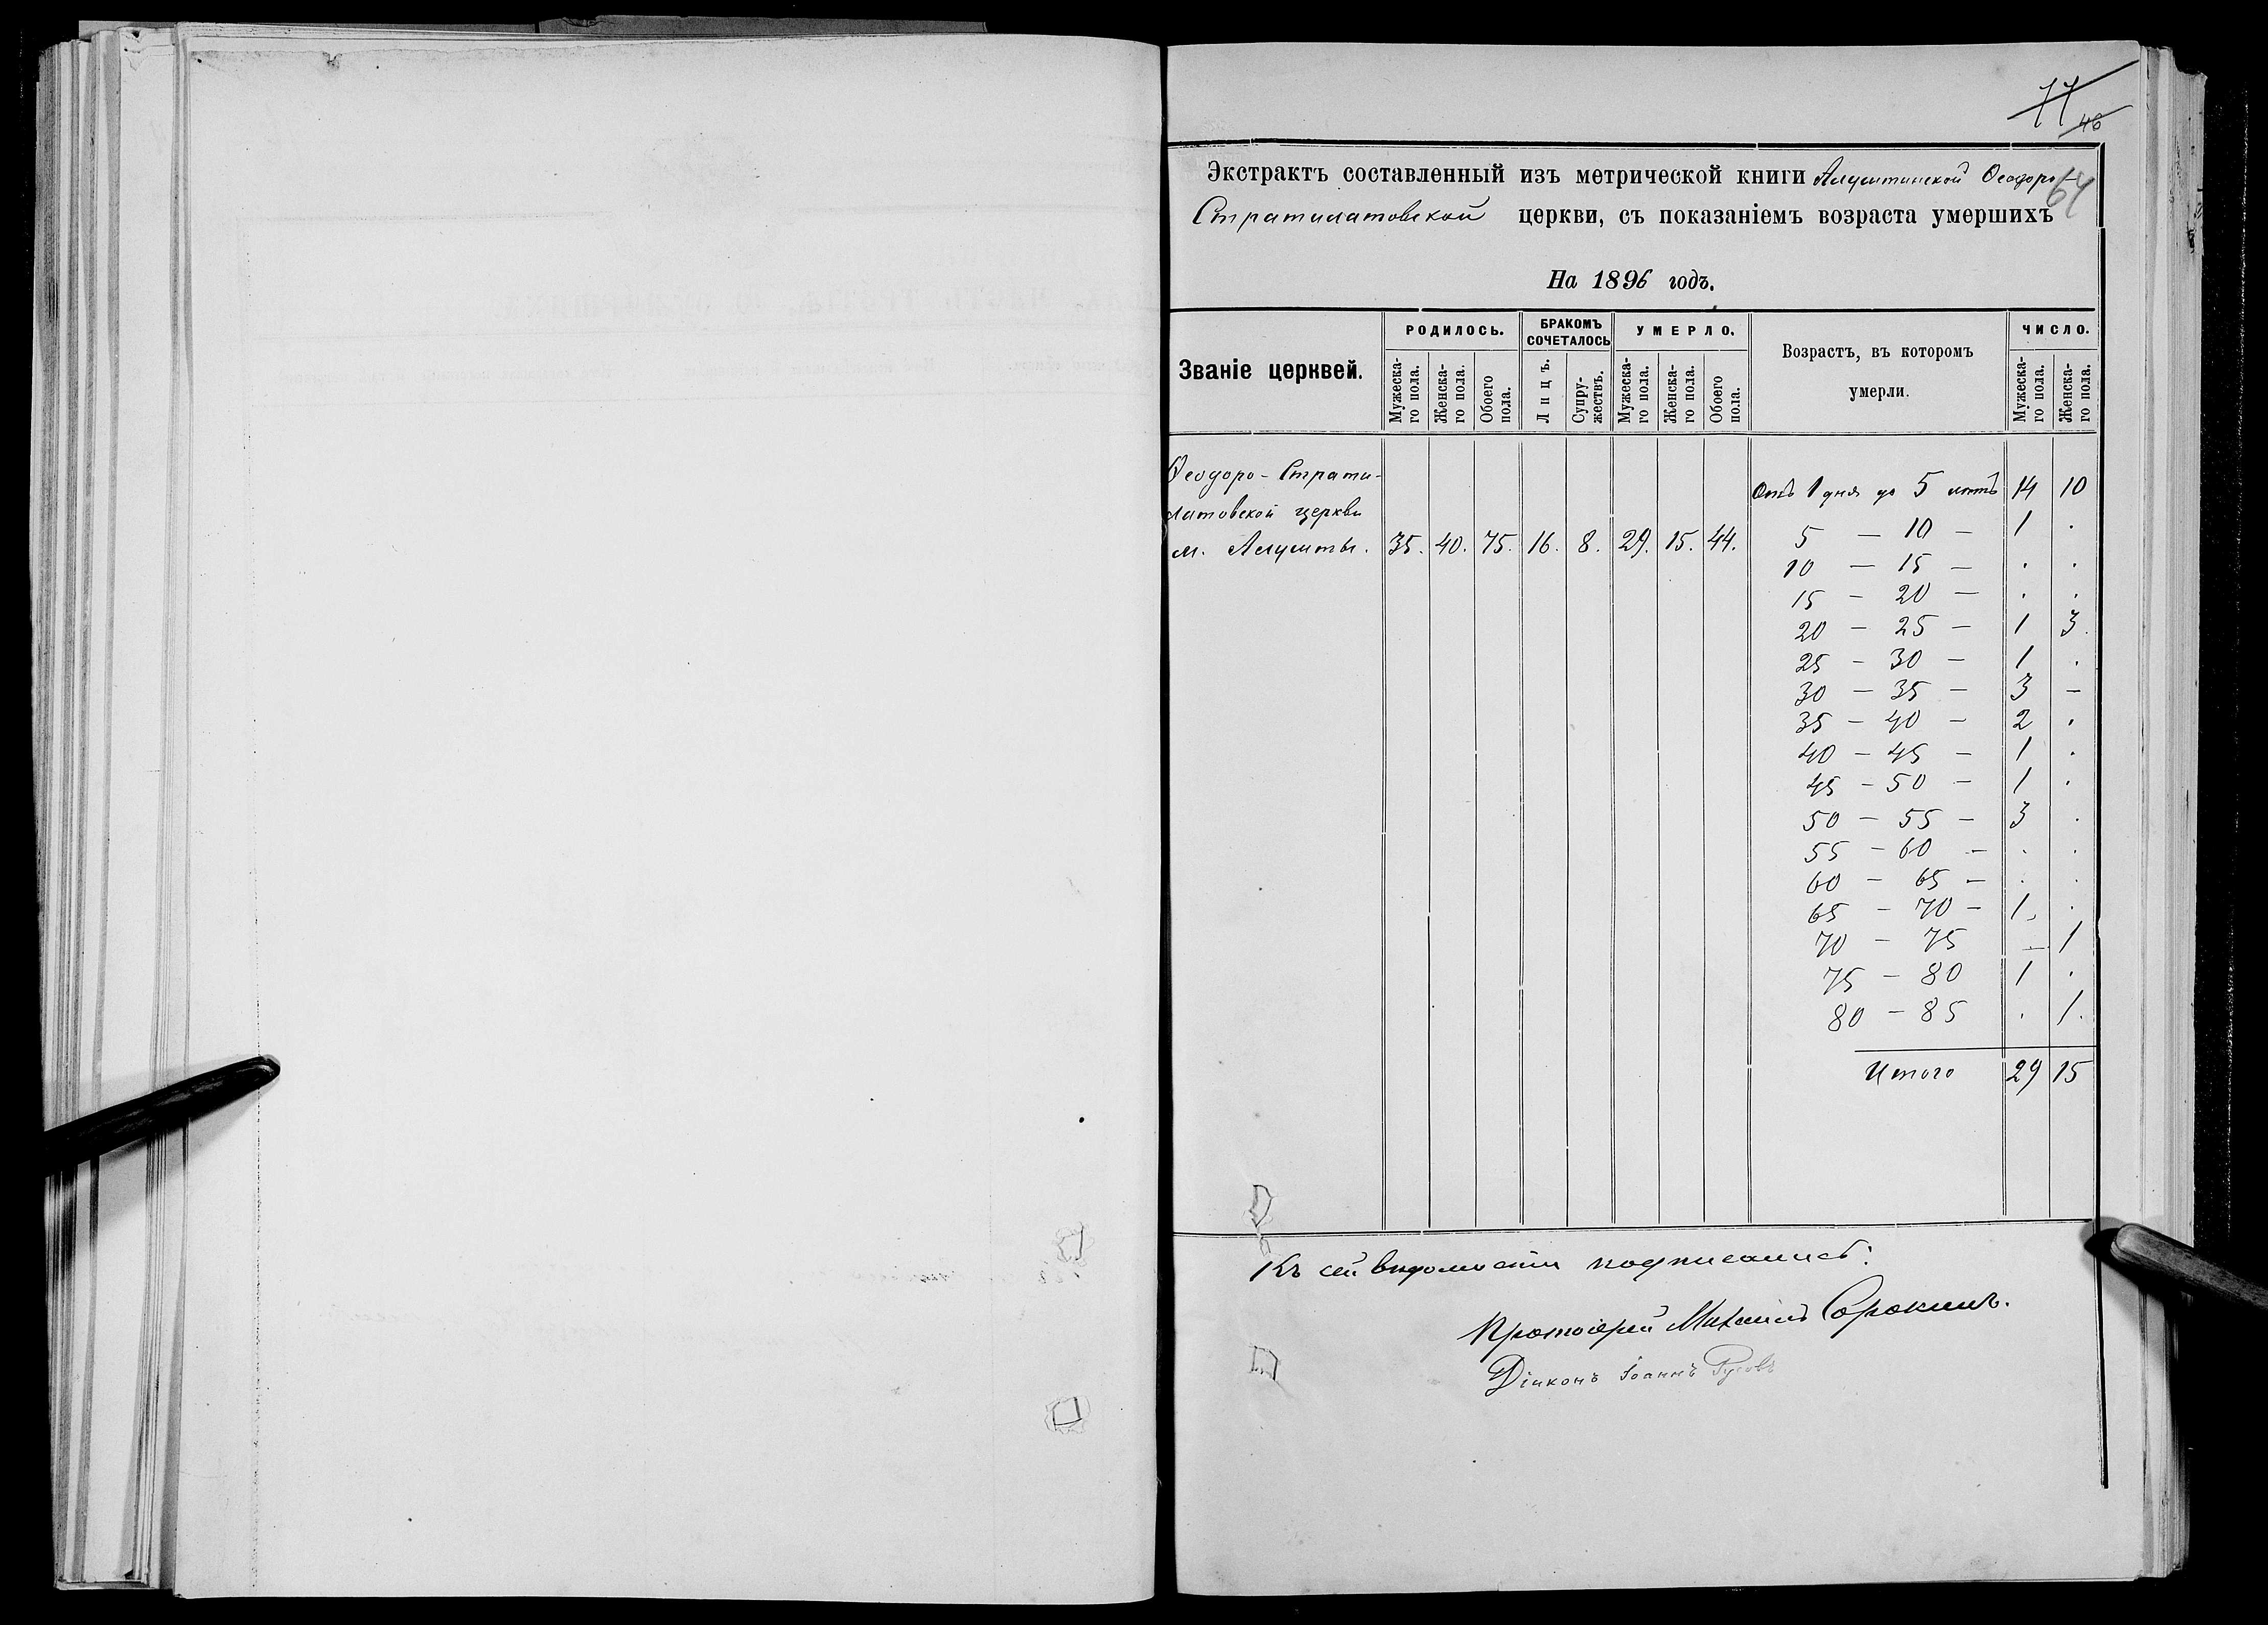 77
46
64
Экстрактъ составленный изъ метрической книги Алуштинской Ѳеодоро-
Стратилатовской церкви, съ показаніемъ возраста умершихъ
На 1896 годъ.
Званіе церквей. РОДИЛОСЬ. БРАКОМЪ СОЧЕТАЛОСЬ УМЕРЛО. Возрастъ, въ которомъ умерли. ЧИСЛО.
Мужеска-го пола. Женска-го пола. Обоего пола. Лицъ. Супру-жествъ. Мужеска-го пола. Женска-го пола. Обоего пола. Мужеска-го пола. Женска-го пола.
Ѳеодоро-Страти-
латовской церкви
м. Алушты. 35. 40. 75. 16. 8. 29. 15. 44.
Отъ 1 дня до 5 лѣтъ 14 10
5 — 10 — 1 .
10 — 15 — . .
15 — 20 — . .
20 — 25 — 1 3.
25 — 30 — 1 .
30 — 35 — 3 —
35 — 40 — 2 .
40 — 45 — 1 .
45 — 50 — 1 .
50 — 55 — 3 .
55 — 60 — . .
60 — 65 — . .
65 — 70 — 1. .
70 — 75 — 1
75 — 80 1 .
80 — 85 . 1.
Итого 29 15
Къ сей вѣдомости подписались:
Протоіерей Михаилъ Сорокинъ.
Діаконъ Іоаннъ